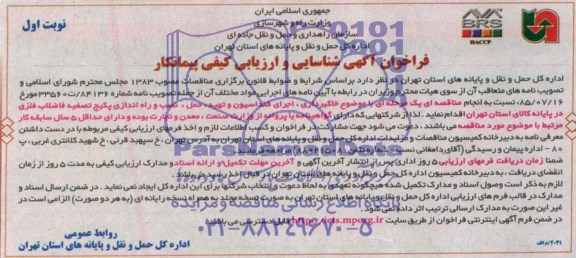 جمهوری اسلامی ایران
وزارت راه و شهرسازی
سازمان راهداری و حمل و نقل جاده ای
اداره کل حمل و نقل و پایانه های استان تهران
نوبت اول
BRS
BACCP
فراخوان آگهی شناسایی و ارزیابی کیفی پیمانکار
اداره کل حمل و نقل و پایانه های استان تهران در نظر دارد براساس شرایط و ضوابط قانون برگزاری مناقصات مصوب ۱۳۸۳ مجلس محترم شورای اسلامی و
تصویب نامه های متعاقب آن از سوی هیات محترم وزیران در رابطه با آیین نامه های اجرایی مواد مختلف آن از جمله تصویب نامه شماره ۸۴۱۳۶/ت۳۳۵۶۰ه مورخ
۸۵/۰۷/۱۶ نسبت به انجام مناقصه ای یک مرحله ای با موضوع خاکبرداری، اجرای فنداسیون و تهیه، حمل، نصب و راه اندازی پکیج تصفیه فاضلاب فلزی
در پایانه کالای استان تهران اقدام نماید. لذا از شرکتهایی که دارای گواهینامه یا پروانه از وزارت صنعت، معدن و تجارت بوده و دارای حداقل ۵ سال سابقه کار
مرتبط با موضوع مورد مناقصه می باشند، دعوت می شود جهت مشارکت در فراخوان و کسب اطلاعات لازم و اخذ فرمهای ارزیابی کیفی مربوطه با در دست داشتن
معرفی نامه به دبیرخانه کمیسیون مناقصات و مزایدات اداره کل حمل و نقل و پایانه های استان تهران به آدرس تهران، خ سپهبد قرنی، خ شهید کلانتری غربی، پ
۸۰ - اداره پیمان و رسیدگی
ضمنا زمان دریافت فرمهای ارزیابی ۵ روز اداری پس از انتشار آخرین آگهی و آخرین مهلت تکمیل و ارائه اسناد و مدارک ارزیابی کیفی به مدت ۵ روز از زمان
انقضای دریافت، به دبیرخانه کمیسیون اداره کل حمل و نقل و پایانه های استان تهران در قبال اخذ رسید می باشد.
لازم به ذکر است وصول اسناد و مدارک تکمیل شده هیچگونه تعهدی به لحاظ دعوت و انتخاب شرکتها برای این اداره کل ایجاد نمی نماید. در ضمن ارسال اسناد و
مدارک در قالب فرم های ارزیابی اداره کل حمل و نقل و پایانه های استان تهران به صورت نسخه مجلد به همراه نسخه رایانه ای (به هر دو صورت) الزامی است در
غیر این صورت به مدارک ارسالی ترتیب اثر داده نمی شود.
در ضمن فرم آگهی اینترنتی فراخوان از طریق سایت قابل دسترسی می باشد.
روابط عمومی
اداره کل حمل و نقل و پایانه های استان تهران
۲۰۴۱/م الف
پایگاه اطلاع رسانی مناقصه و مزایده
۰۲۱-۸۸۳۴۹۶۷۰-۵